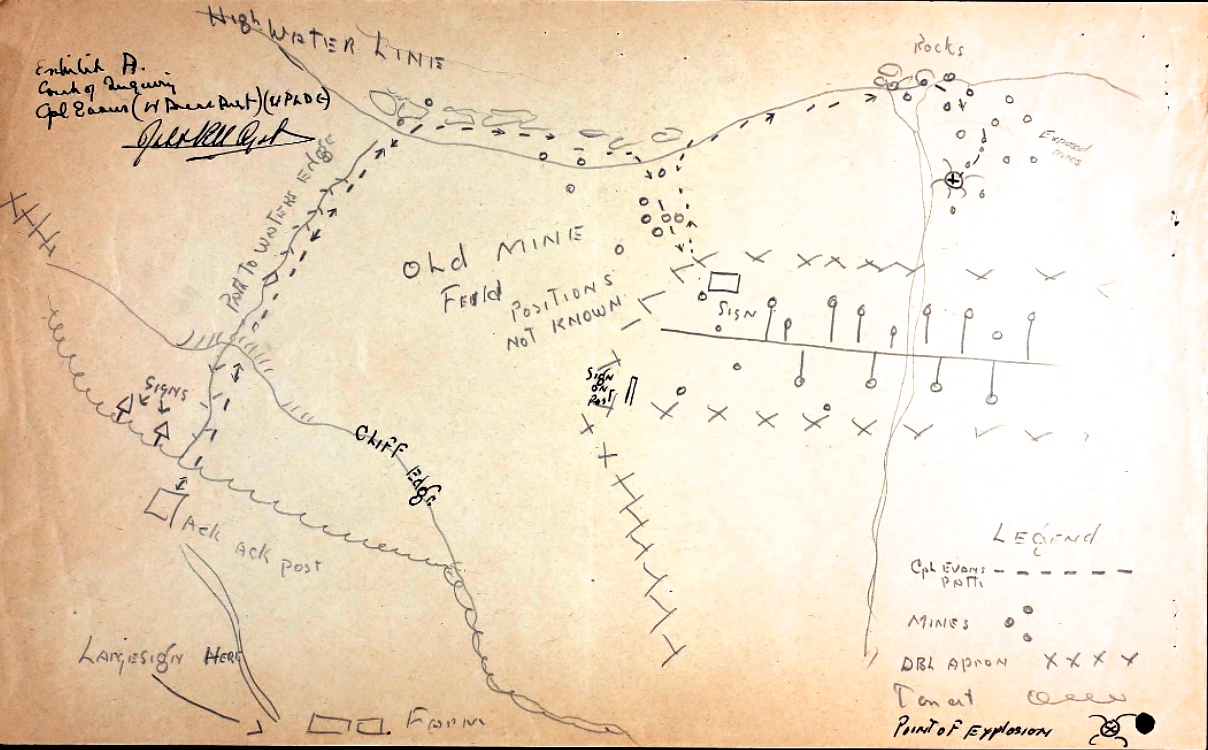 High WATER LINE
Rocks
Exhibit A.
Court of Inquiry
Cpl Evans
Exposed
mines
PATH TO WATERS EDGE
OLd MINE
FEild POSITIONS
NOT KNOWN
SIGN
SIGN
ON
POST
SIGNS
CLIFF EdgE
Ack Ack post
LArgESIgN HERE
FARM
LEGEND
Cpl EVANS
PATH
MINES
DBL APRON
POINT OF EXplOSION